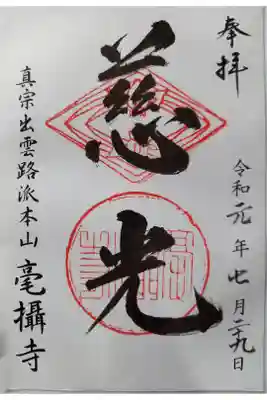 奉拝
令和元年七月二十九日
慈光
真宗出雲路派本山 毫攝寺